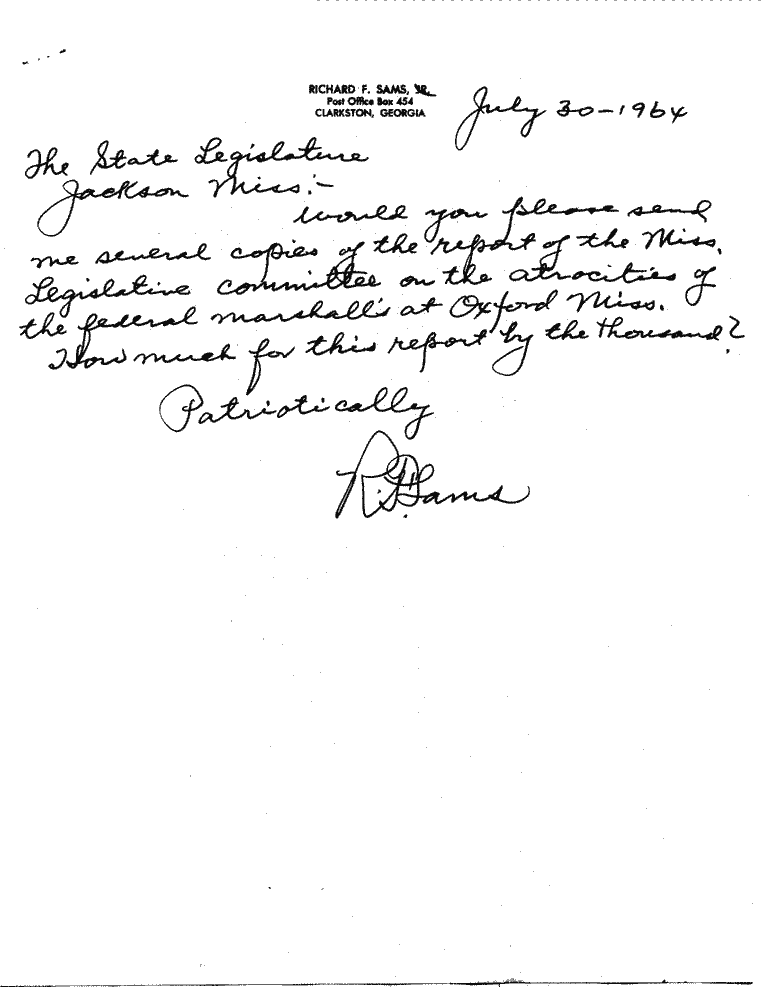 RICHARD F. SAMS, JR.
Post Office Box 454
CLARKSTON, GEORGIA
July 30-1964
The State Legislature
Jackson Miss:-
Would you please send
me several copies of the report of the Miss.
Legislative committee on the atrocities of
the federal marshall's at Oxford Miss.
How much for this report by the thousand?
Patriotically
R.F. Sams